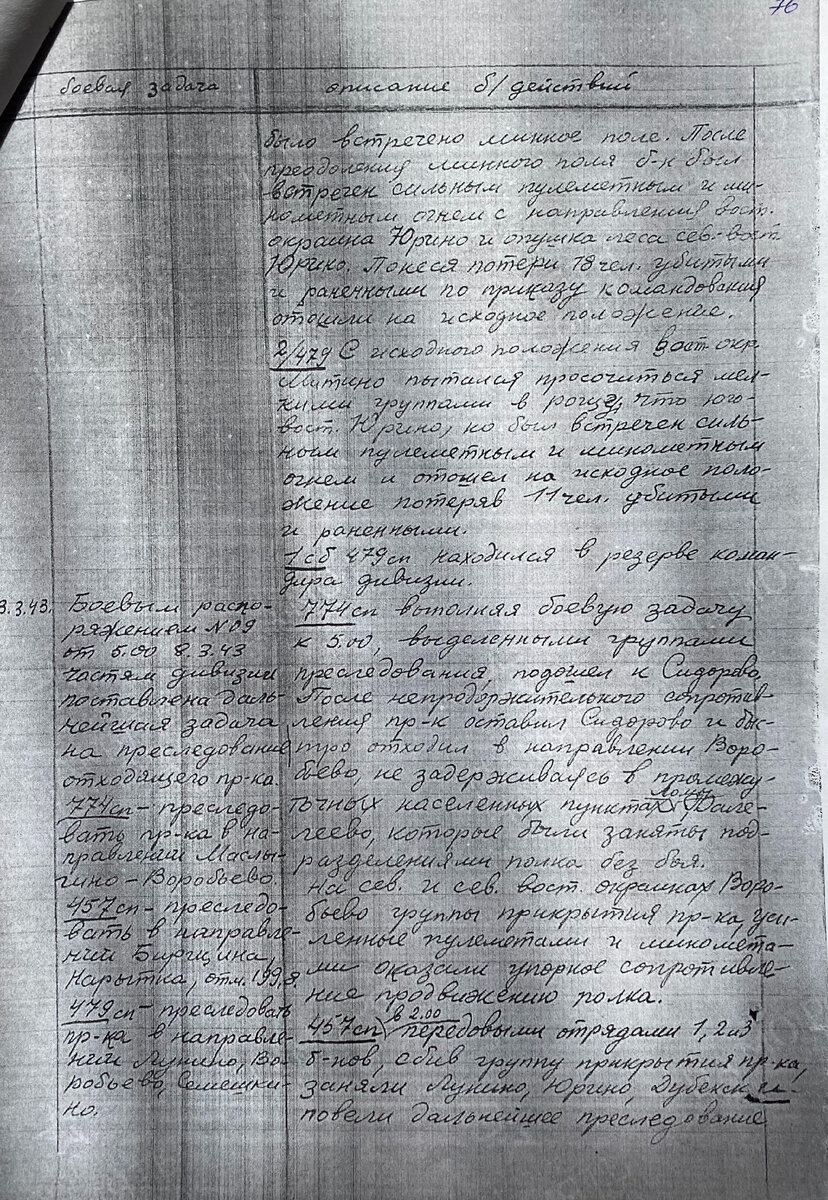 76
боевая задача
описание б/действий
было встречено минное поле. После
преодоления минного поля б-н был
встречен сильным пулеметным и ми-
нометным огнем с направления вост.
окраина Юрино и опушка леса сев.-вост.
Юрино. Понеся потери 18 чел. убитыми
и раненными по приказу командования
отошли на исходное положение.
2/479 С исходного положения вост окр
Митино пытался просочиться мел-
кими группами в рощу, что юго-
вост. Юрино, но был встречен силь-
ным пулеметным и минометным
огнем и отошел на исходное поло-
жение потеряв 11 чел. убитыми
и раненными.
1 сб 479 сп находился в резерве коман-
дира дивизии.
3.3.43.
Боевым распо-
ряжением №09
от 5.00 8.3.43
частям дивизии
поставлена даль-
нейшая задача
на преследование
отходящего пр-ка.
774 сп - преследо-
вать пр-ка в на-
правлении Маслы-
гино - Воробьево.
457 сп - преследо-
вать в направле-
нии
Нарытка, отм. 199,8.
479 сп - преследовать
пр-ка в направле-
нии Лунино, Во-
робьево, Семешки-
но.
774 сп выполняя боевую задачу
к 5.00, выделенными группами
преследования, подошел к Сидорово.
После непродолжительного сопротив-
ления пр-к оставил Сидорово и быс-
тро отходил в направлении Воро-
бьево, не задерживаясь в промежу-
точных населенных пунктах Ломы
которые были заняты под-
разделениями полка без боя.
На сев. и сев. вост. окраинах Воро-
бьево группы прикрытия пр-ка, уси-
ленные пулеметами и минометa-
ми оказали упорное сопротивле-
ние продвижению полка.
457 сп в 2.00 передовыми отрядами 1, 2 и 3
б-нов, сбив группу прикрытия пр-ка,
заняли Лунино, Юрино, Дубекск и
повели дальнейшее преследование